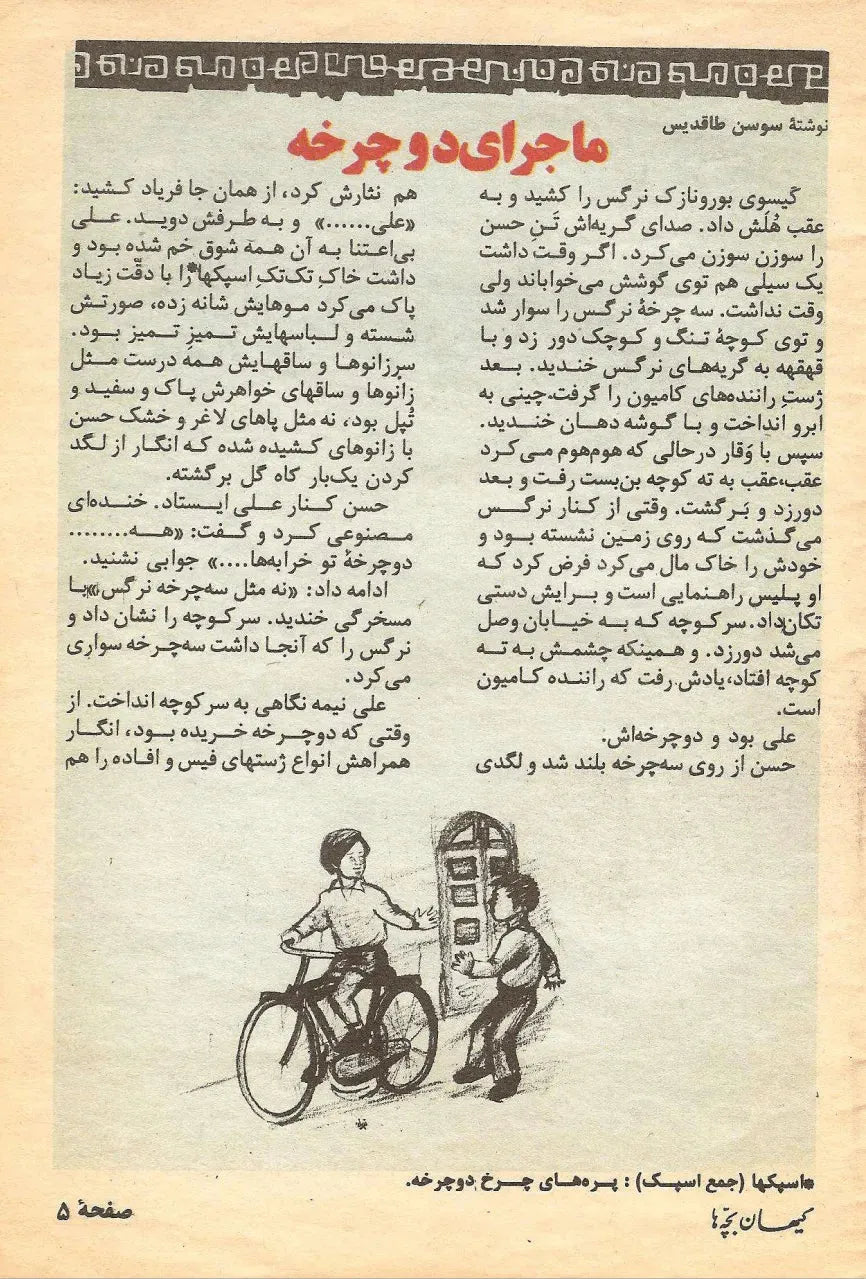 نوشتهٔ سوسن طاقدیس
ماجرای دوچرخه
گیسوی بور و نازک نرگس را کشید و به
عقب هُلَش داد. صدای گریه‌اش تَنِ حسن
را سوزن سوزن می‌کرد. اگر وقت داشت
یک سیلی هم توی گوشش می‌خواباند ولی
وقت نداشت. سه چرخهٔ نرگس را سوار شد
و توی کوچهٔ تنگ و کوچک دور زد و با
قهقهه به گریه‌های نرگس خندید. بعد
ژستِ راننده‌های کامیون را گرفت.چینی به
ابرو انداخت و با گوشه دهان خندید.
سپس با وَقار درحالی که هوم‌هوم می‌کرد
عقب،عقب به ته کوچه بن‌بست رفت و بعد
دورزد و بَرگشت. وقتی از کنار نرگس
می‌گذشت که روی زمین نشسته بود و
خودش را خاک مال می‌کرد فرض کرد که
او پلیس راهنمایی است و برایش دستی
تکان‌داد. سر کوچه که به خیابان وصل
می‌شد دورزد. و همینکه چشمش به ته
کوچه افتاد،یادش رفت که راننده کامیون
است.
علی بود و دوچرخه‌اش.
حسن از روی سه‌چرخه بلند شد و لگدی
هم نثارش کرد، از همان جا فریاد کشید:
«علی......» و به طرفش دوید. علی
بی‌اعتنا به آن همه شوق خم شده بود و
داشت خاکِ تک‌تکِ اسپکها*را با دقّت زیاد
پاک می‌کرد موهایش شانه زده، صورتش
شسته و لباسهایش تمیزِ تمیز بود.
سرزانوها و ساقهایش همه درست مثل
زانوها و ساقهای خواهرش پاک و سفید و
تُپل بود، نه مثل پاهای لاغر و خشک حسن
با زانوهای کشیده شده که انگار از لگد
کردن یک‌بار کاه گل برگشته.
حسن کنار علی ایستاد. خنده‌ای
مصنوعی کرد و گفت: «هه........
دوچرخهٔ تو خرابه‌ها....» جوابی نشنید.
ادامه داد: «نه مثل سه‌چرخه نرگس،»با
مسخرگی خندید. سرکوچه را نشان داد و
نرگس را که آنجا داشت سه‌چرخه سواری
می‌کرد.
علی نیمه نگاهی به سرکوچه انداخت. از
وقتی که دوچرخه خریده بود، انگار
همراهش انواع ژستهای فیس و افاده را هم
*اسپکها (جمع اسپک) : پره‌های چرخ دوچرخه.
کیهان بچّه‌ها
صفحهٔ ۵